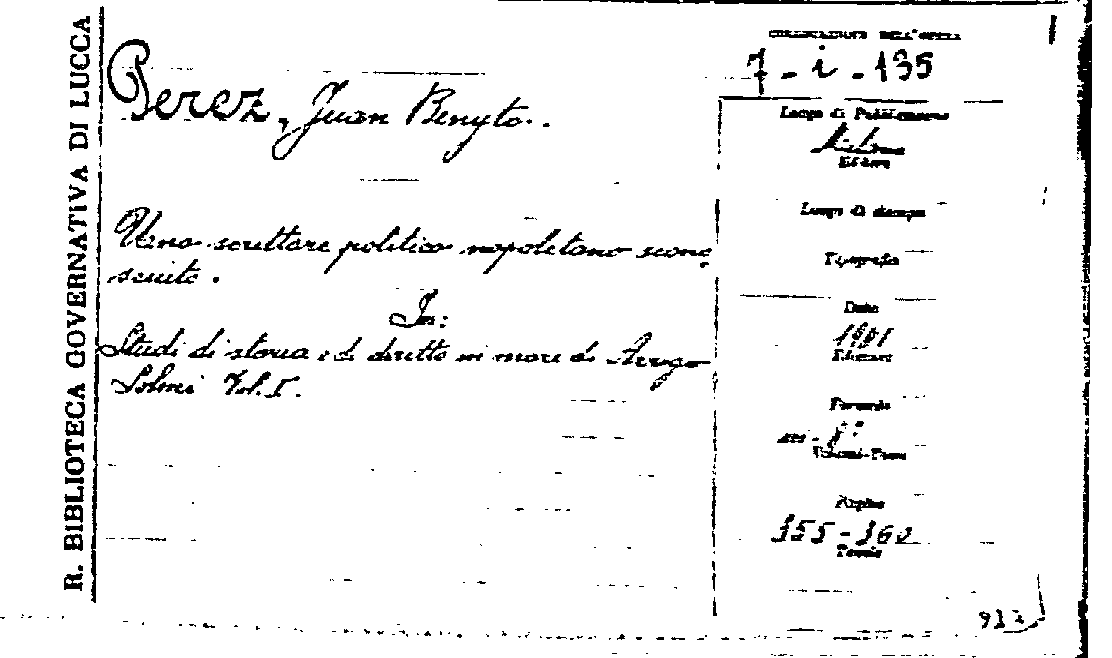 R. BIBLIOTECA GOVERNATIVA DI LUCCA
COLLOCAZIONE DELL'OPERA
7 - i - 135
Perez, Juan Benyto.
Luogo di Pubblicazione
Editore
Luogo di stampa
Uno scrittore politico napoletano scono
sciuto.
Tipografia
In:
Data
Studi di storia e di diritto in onore di Arrigo
Solmi Vol. I.
Formato
in-8°
Pagine
355-360
Tavole